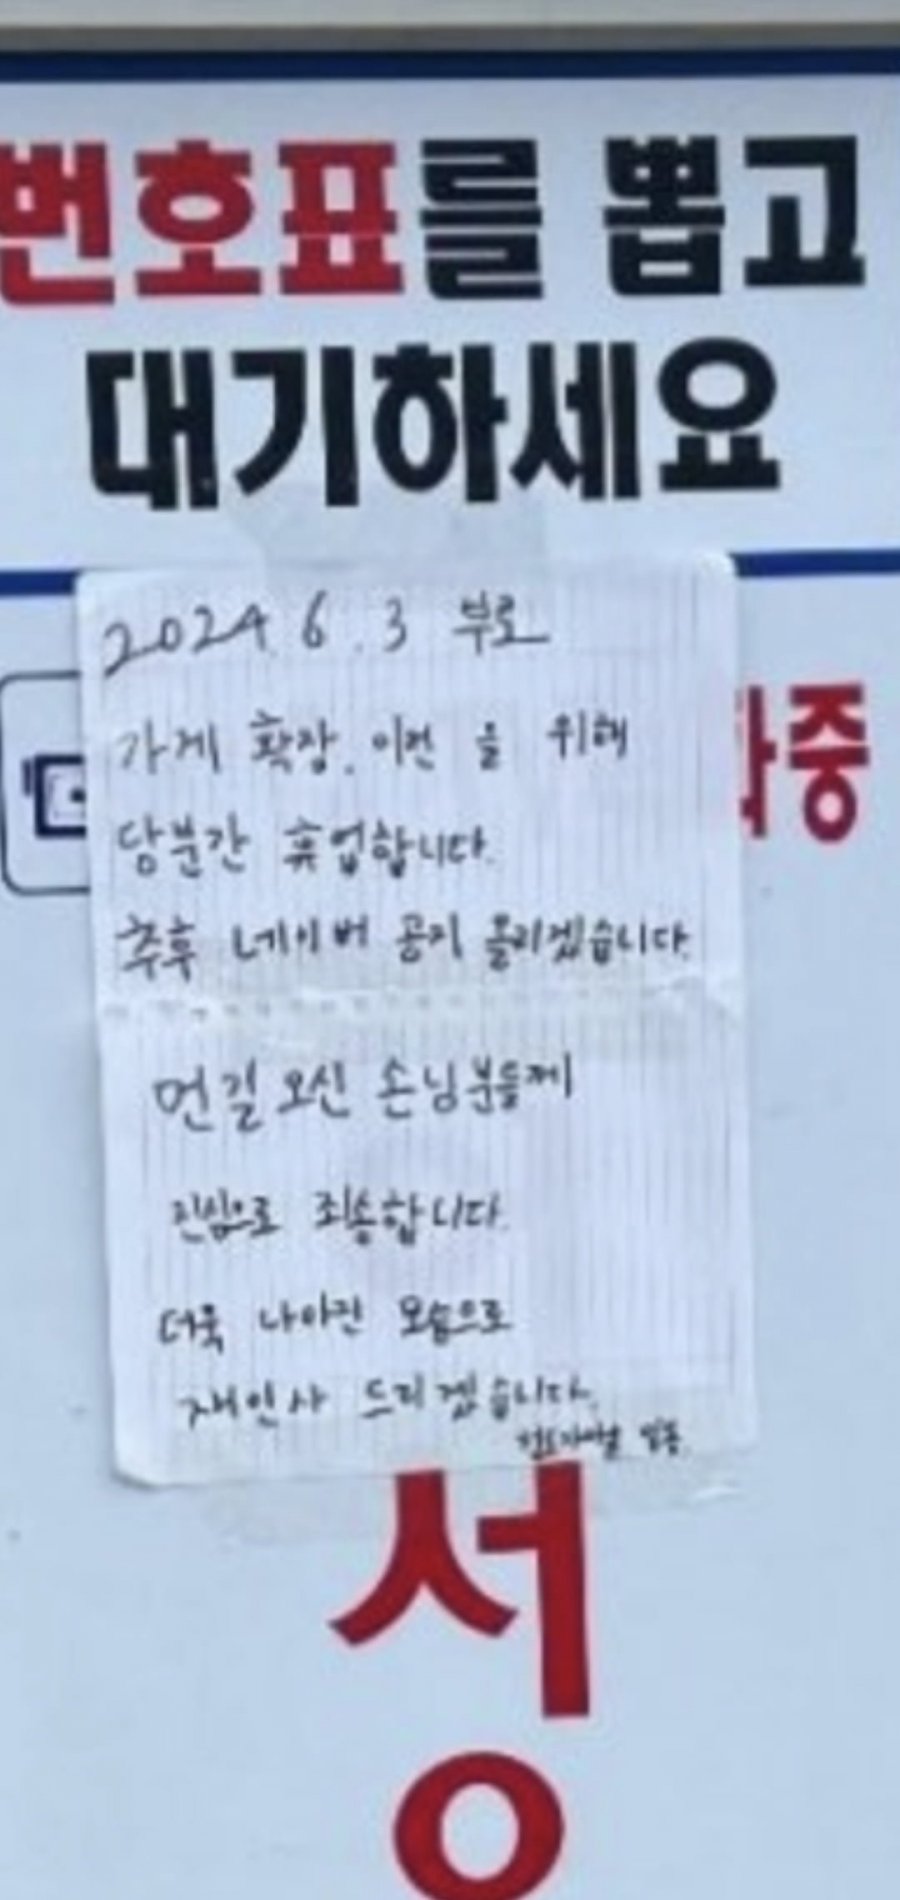 번호표를 뽑고
대기하세요
2024. 6. 3 부로
가게 확장. 이전 을 위해
중
당분간 휴업합니다.
추후 네이버 공지 올리겠습니다.
먼길 오신 손님분들께
진심으로 죄송합니다.
더욱 나아진 모습으로
재인사 드리겠습니다.
성